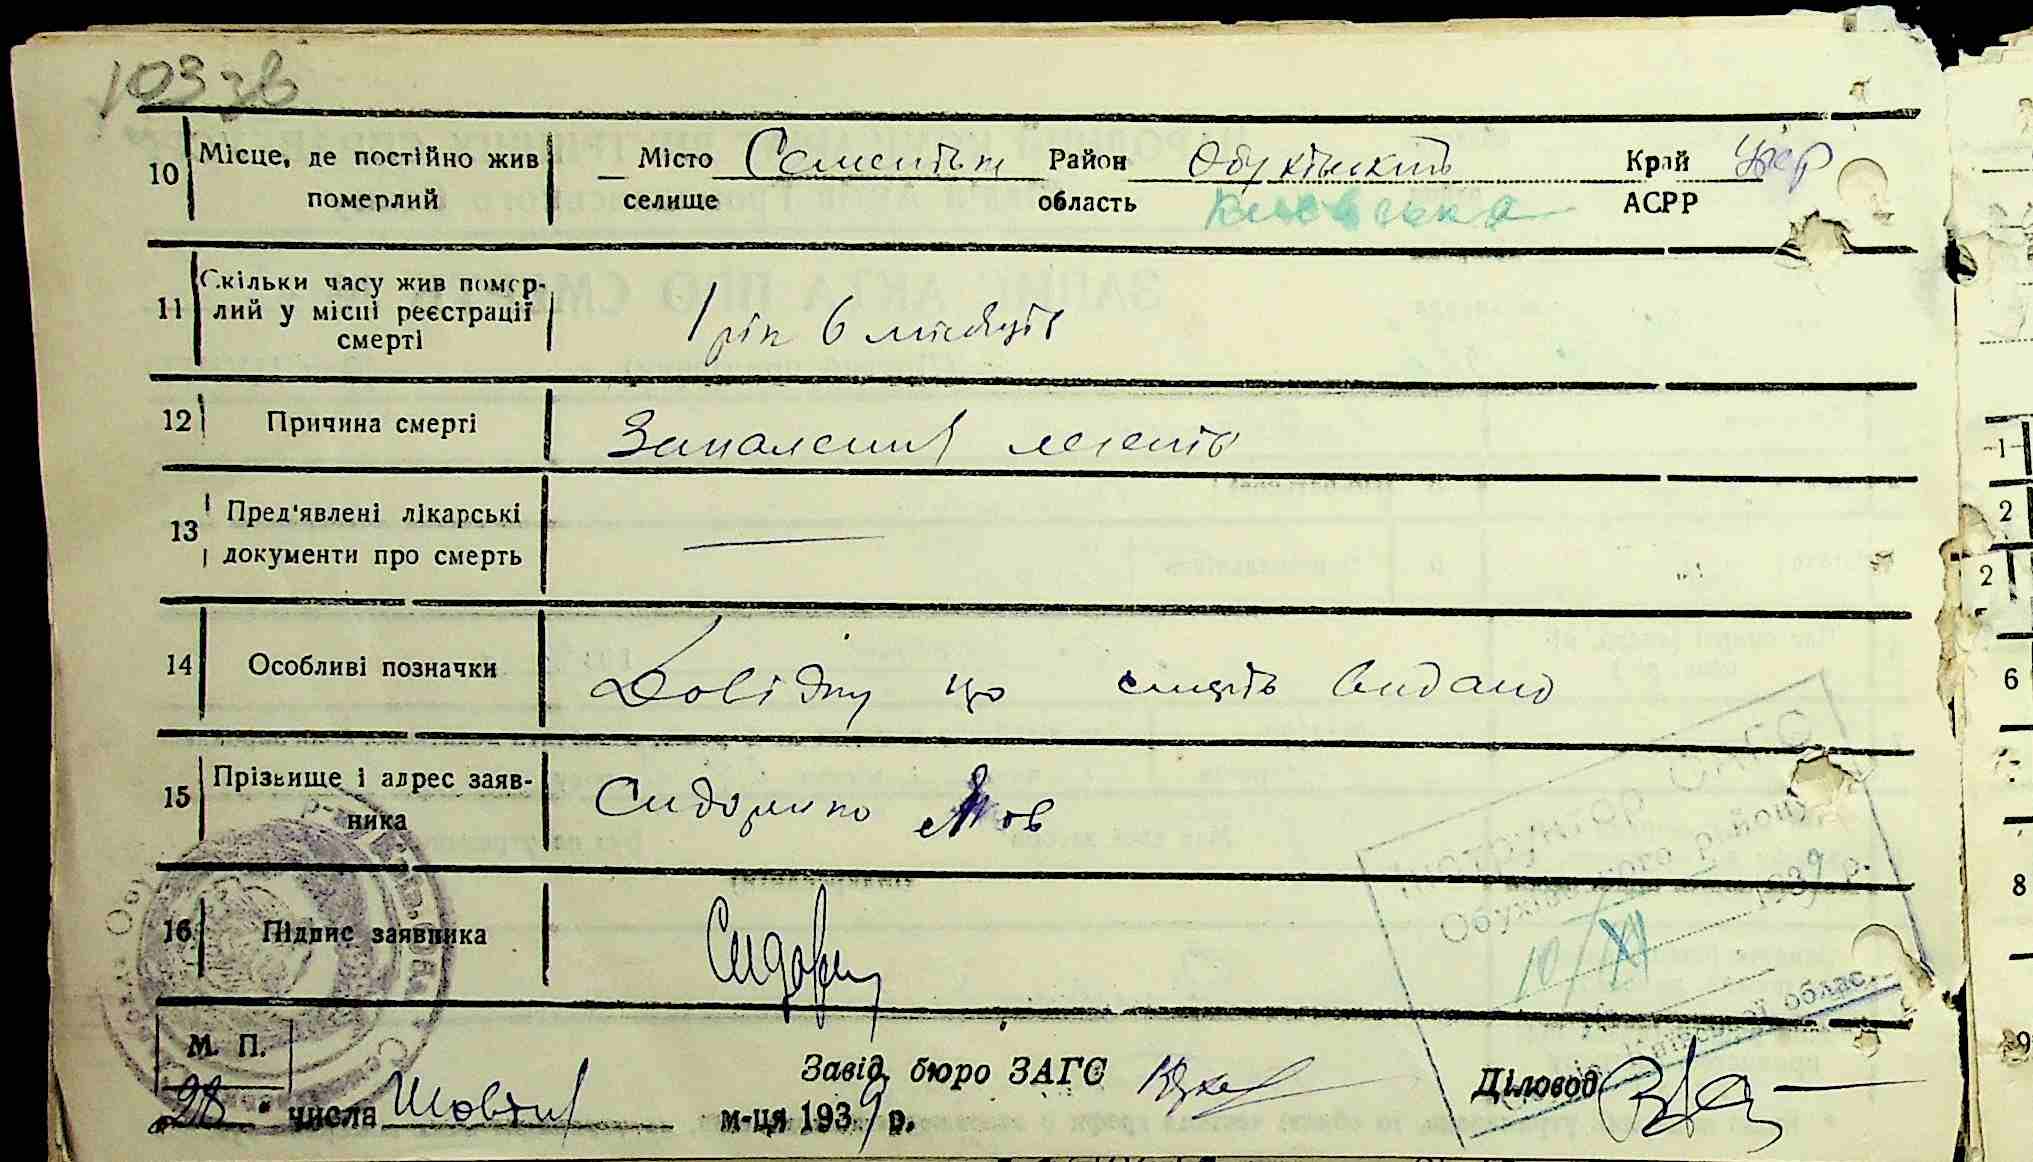 103 зв
10 Місце, де постійно жив померлий
Місто селище Семенівка Район Обухівский Край Укр
область Киевська АСРР
11 Скільки часу жив помер-
лий у місці реєстрації
смерті
1 рік 6 місяців
12 Причина смерті Запалення легенів
13 Пред'явлені лікарські
документи про смерть
—
14 Особливі позначки Довідку що смерть видано
15 Прізвище і адрес заяв-
ника
Сидоренко Яков
16 Підпис заявника Сидорен
М. П.
Завід. бюро ЗАГС
Діловод
"28" числа Жовтня м-ця 1939 р.
Інструктор ОАГС
Обухівського району
10/XI 1939 р.
Київської облас.